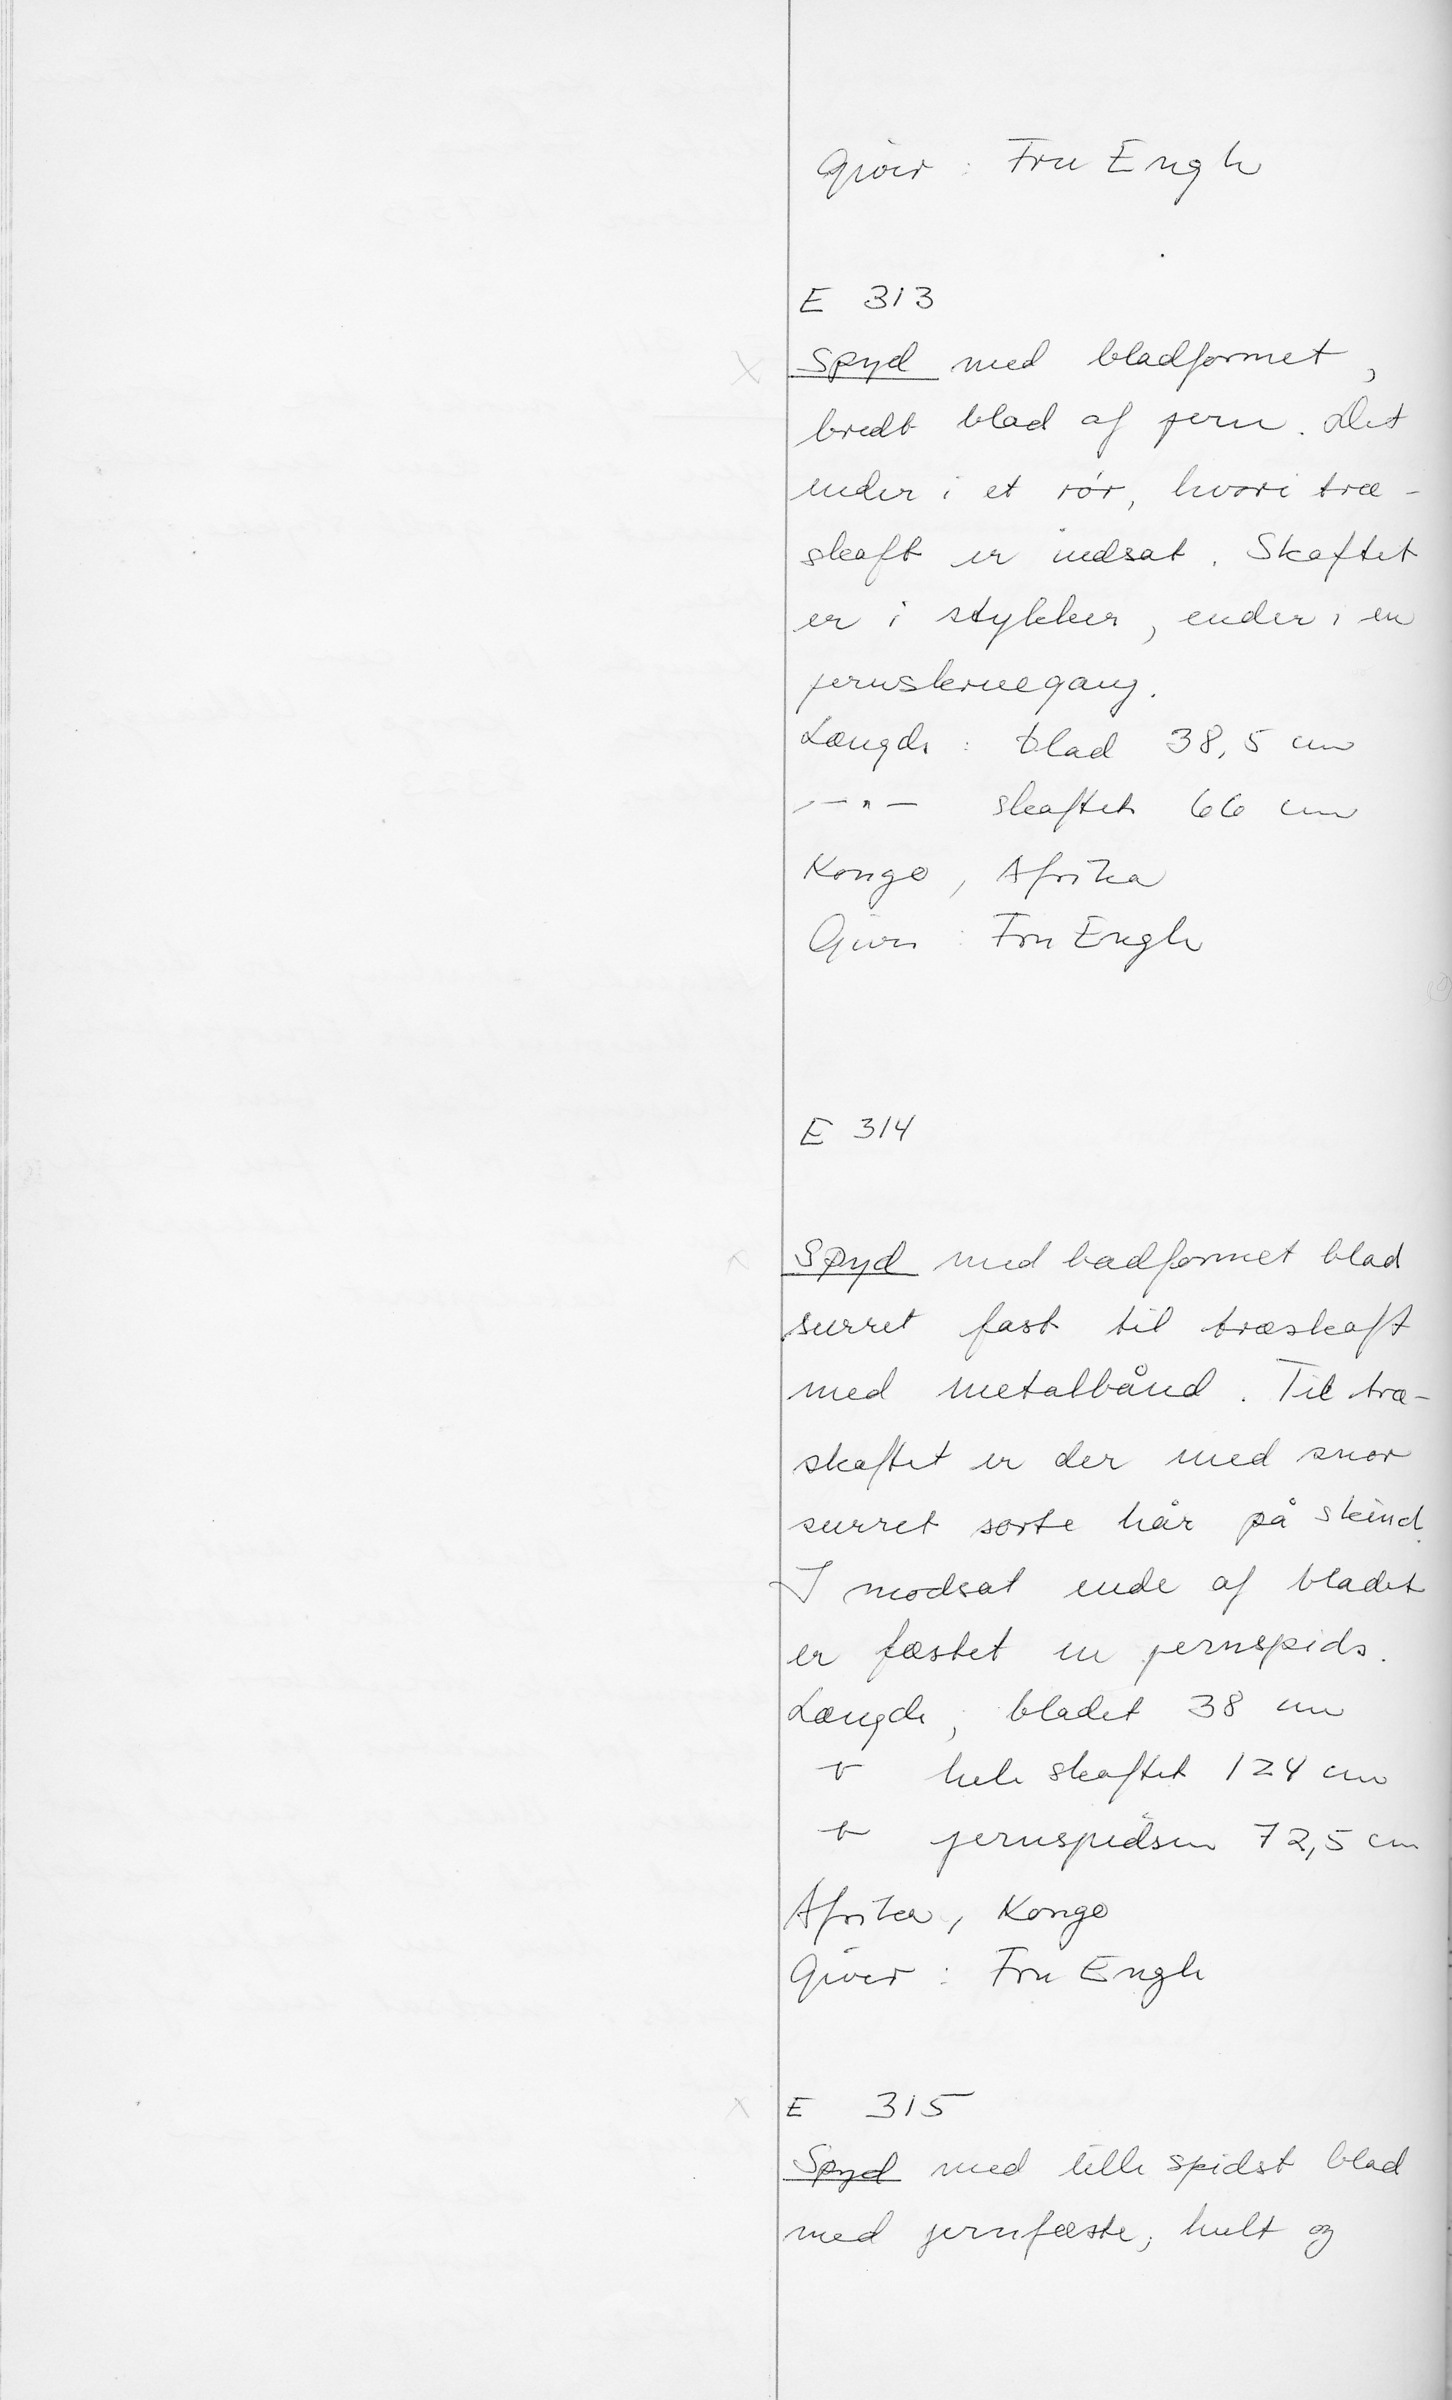 Giver : Fru Engh
E 313
x Spyd med bladformet,
bredt blad af jern. Det
ender i et rör, hvori træ-
skaft er indsat. Skaftet
er i stykker, ender i en
jernskruegang.
Længde : blad 38,5 cm
-"- skaftet 66 cm
Kongo, Afrika
Giver : Fru Engh
E 314
x Spyd med badformet blad
surret fast til træskaft
med metalbånd. Til træ-
skaftet er der med snor
surret sorte hår på skind.
I modsat ende af bladet
er fæstet en jernspids.
Længde, bladet 38 cm
" hele skaftet 124 cm
" jernspidsen 72,5 cm
Afrika, Kongo
Giver : Fru Engh
x E 315
Spyd med lille spidst blad
med jernfæste, hult og